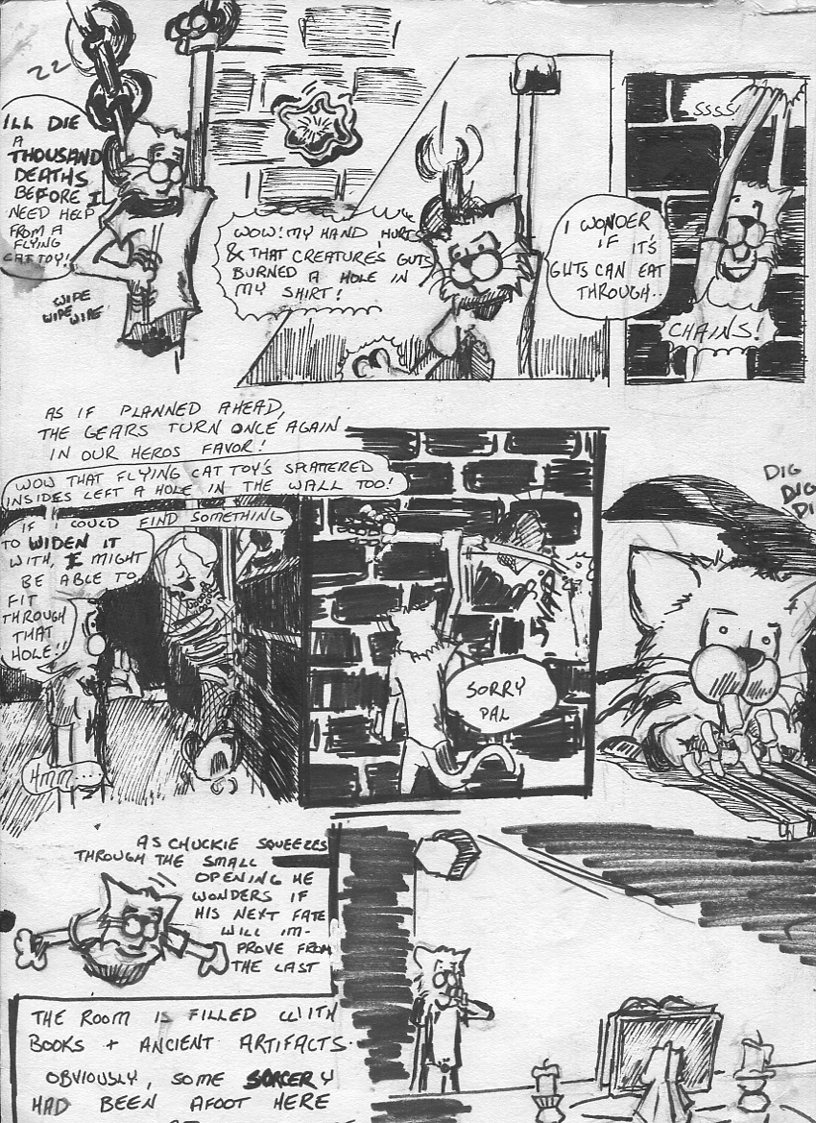 22
ILL DIE
A
THOUSAND
DEATHS
BEFORE I
NEED HELP
FROM A
FLYING
CAT TOY!
WIPE
WIPE WIPE
WOW! MY HAND HURTS
& THAT CREATURE'S GUTS
BURNED A HOLE IN
MY SHIRT!
I WONDER
IF IT'S
GUTS CAN EAT
THROUGH..
SSSS!
CHAINS!
AS IF PLANNED AHEAD,
THE GEARS TURN ONCE AGAIN
IN OUR HEROS FAVOR!
WOW THAT FLYING CAT TOY'S SPLATTERED
INSIDES LEFT A HOLE IN THE WALL TOO!
IF I COULD FIND SOMETHING
TO WIDEN IT
WITH, I MIGHT
BE ABLE TO
FIT
THROUGH
THAT
HOLE!!
HMM....
SORRY
PAL
DIG
DIG
DI
AS CHUCKIE SQUEEZES
THROUGH THE SMALL
OPENING HE
WONDERS IF
HIS NEXT FATE
WILL IM-
PROVE FROM
THE LAST
THE ROOM IS FILLED WITH
BOOKS + ANCIENT ARTIFACTS.
OBVIOUSLY, SOME SORCERY
HAD BEEN AFOOT HERE